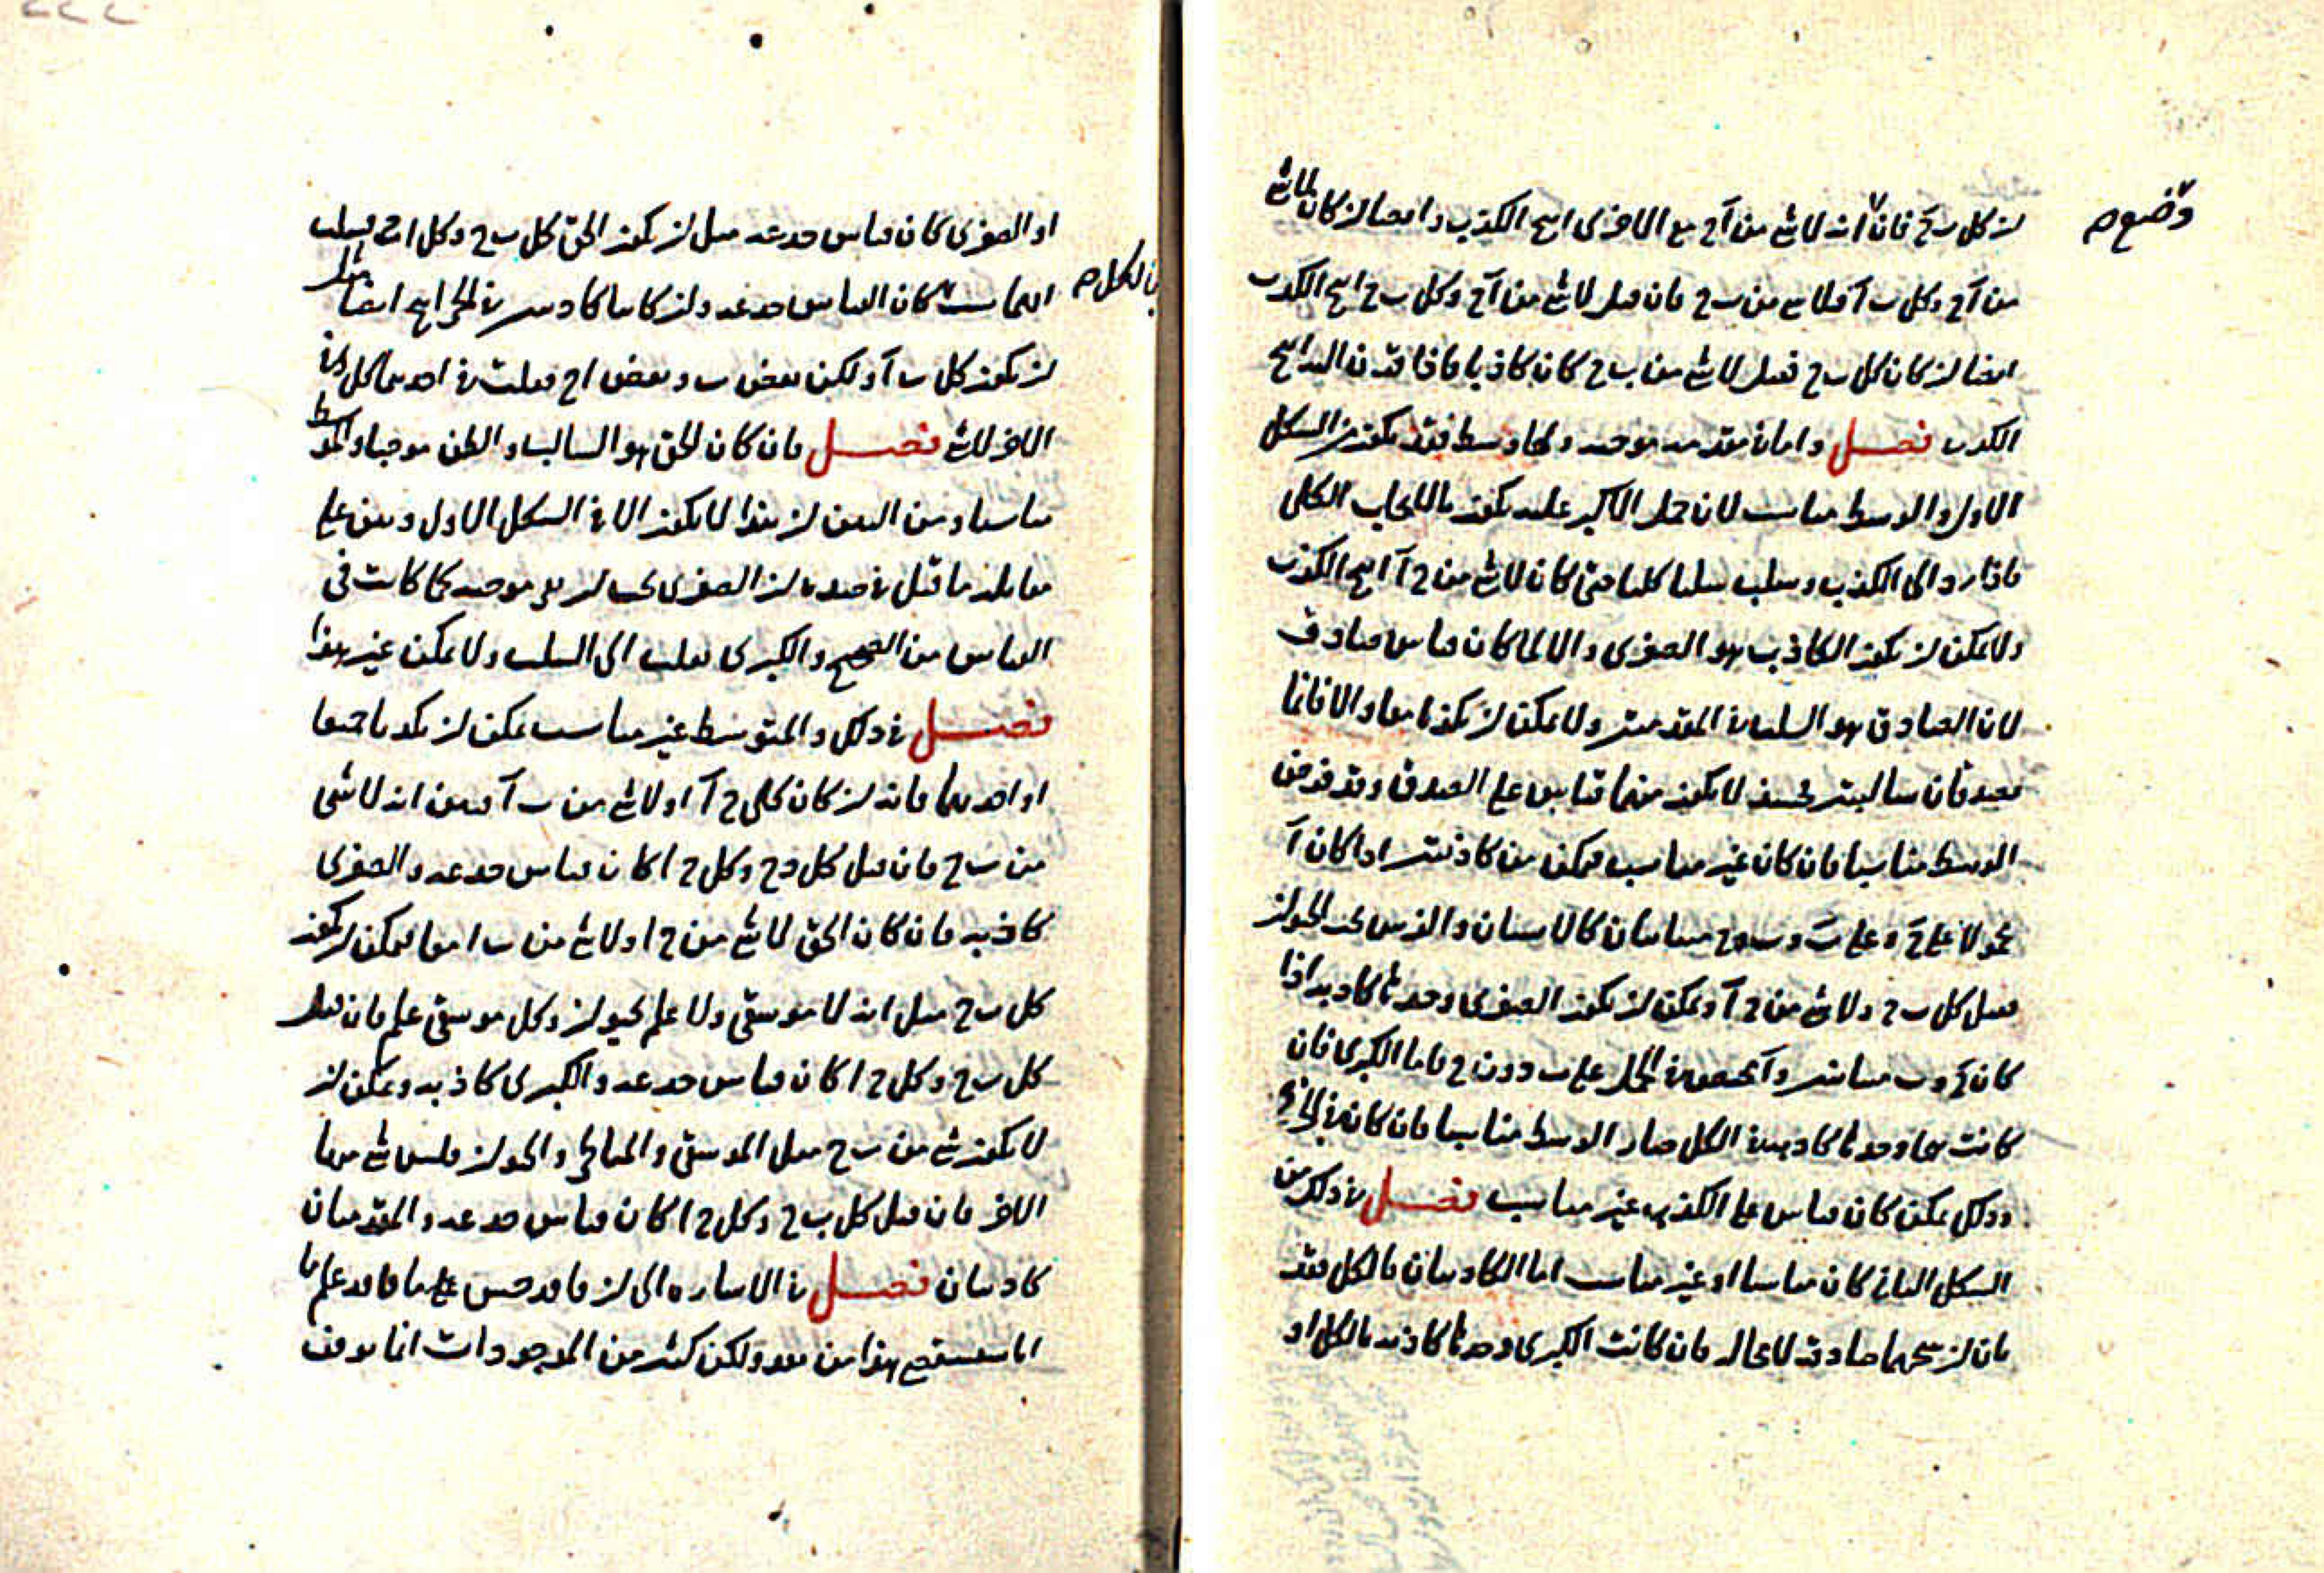 ان كل ب ج فان انه لا شئ من آ ج مع الاخرى انتج الكذب وايضا ان كان لا شئ
وضع صح
من آ ج وكل ب آ فلا شئ من ب ج فان قيل لا شئ من آ ج وكل ب ج انتج الكذب
ايضا ان كان كل ب ج فقيل لا شئ من ب ج كان كاذبا فاذا قرن اليه انتج
الكذب فصل واما ان مقدمه موجبه ولها وسط فقد يكون من الشكل
الاول والوسط مناسب لان حمل الاكبر عليه يكون بالايجاب الكلى
فاذا رد الى الكذب وسلب سلبا كليا حتى كان لا شئ من ج آ انتج الكذب
ولا يمكن ان يكون الكاذب هو الصغرى والا لما كان قياس صادق
لان الصادق هو السلب فى المقدمتين ولا يمكن ان يكونا معا والا فانما
يصدقان سالبتين فحينئذ لا يكون منهما قياس على الصدق وقد فرض
الوسط مناسبا فان كان غير مناسب فيمكن من كاذبتين اذا كان آ
محمولا على ج وعلى ب و ب و ج متباينان كالانسان والفرس تحت الحيوان
فقيل كل ب ج ولا شئ من ج آ ويمكن ان يكون الصغرى وحدها كاذبه اذا
كان ج و ب متباينين و آ فى الحمل على ب دون ج فاما الكبرى فان
كانت هى وحدها كاذبه فى الكل صار الوسط مناسبا فان كان فى الجزء
وذلك يمكن كان قياس على الكذب غير مناسب فصل فى ذلك من
الشكل الثانى كان مناسبا او غير مناسب اما الكاذبتان بالكل فقد
بان ان نتيجتهما صادقه لا محاله فان كانت الكبرى وحدها كاذبه بالكل او
او الصغرى كان قياس خدعه مثل ان يكون الحق كل ب ج وكل ا ج فسلب
ايهما شئت كان القياس خدعه وان كانتا كاذبتين فى الجزء انتج ايضا مثل
بالكل صح
ان يكون كل ب آ ولكن بعض ب وبعض ا ج فقلت فى احدهما كل وفى
الاخر لا شئ فصل فان كان الحق هو السالب والظن موجبا والمتوسط
مناسبا ومن البين ان هذا لا يكون الا فى الشكل الاول وبين على
مقابله ما قيل فى ضده ان الصغرى يجب ان موجبه كما كانت فى
القياس من الصحيح والكبرى تقلب الى السلب ولا يمكن غير هذا
فصل فى ذلك والمتوسط غير مناسب يمكن ان يكذبا جميعا
او احدهما فانه ان كان كل ج آ او لا شئ من ب آ فبين انه لا شئ
من ب ج فان قيل كل ب ج وكل ج ا كان قياس خدعه والصغرى
كاذبه فان كان الحق لا شئ من ج ا ولا شئ من ب ا معا فيمكن ان يكون
كل ب ج مثل انه لا موسيقى ولا علم بحيوان وكل موسيقى علم فان قيل
كل ب ج وكل ج ا كان قياس خدعه والكبرى كاذبه ويمكن ان
لا يكون شئ من ب ج مثل الموسيقى والحيوان فليس شئ منها
الاخر فان قيل كل ب ج وكل ج ا كان قياس خدعه والمقدمتان
كاذبتان فصل فى الاشاره الى ان فاقد حس ما فاقد علم ما
انا سنستقصى هذا من بعد ولكن كثير من الموجودات انما يوقف